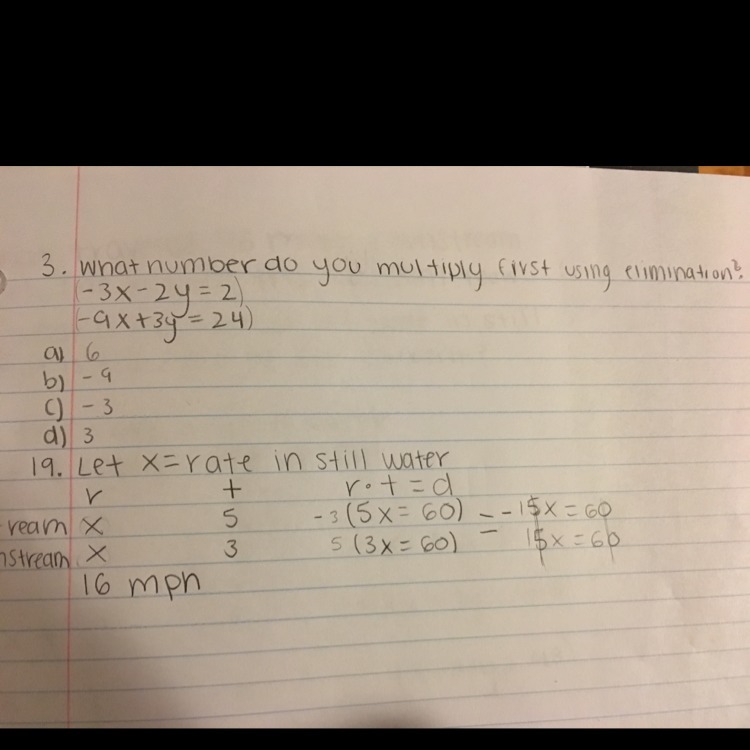 3. What number do you multiply first using elimination?
(-3x-2y=2)
(-9x+3y=24)
a) 6
b) -9
c) -3
d) 3
19. Let x=rate in still water
r t r·t=d
ream x 5 -3(5x=60) = -15x=60
nstream x 3 5(3x=60) 15x=60
16 mph